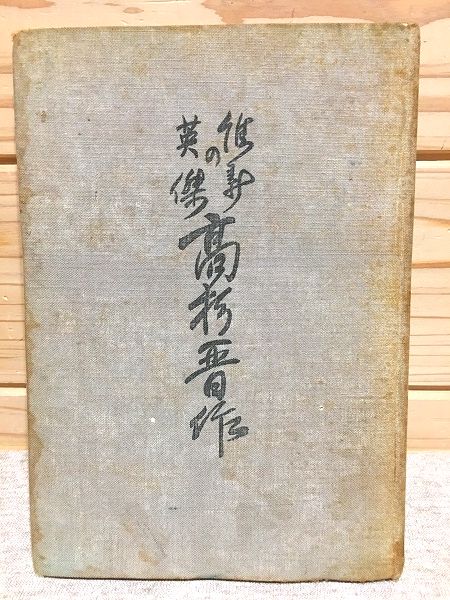 維新の
英傑
高杉晋作